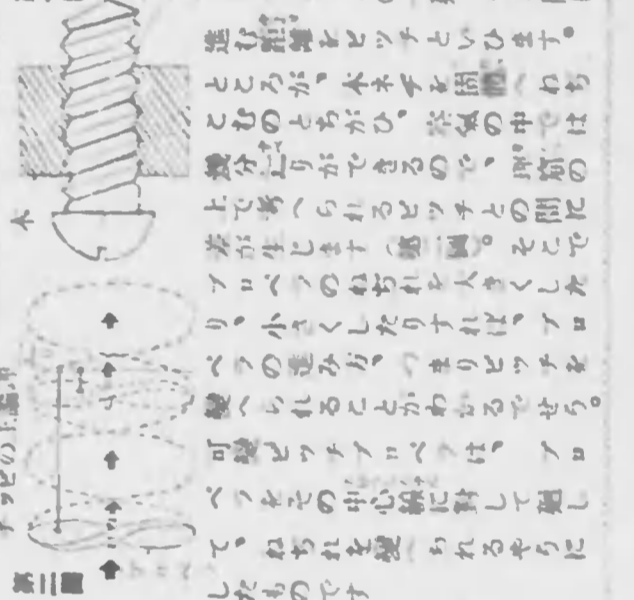 進む距離をピッチといひます。
ところが、木ネヂを へねぢ
こむのとちがひ、空氣の中では
幾分辷りができるので、 の
上で考へられるピッチとの間に
差が生じます（第二圖）。そこで
プロペラのねぢれを大きくした
り、小さくしたりすれば、プロ
ペラの進みが、つまりピッチを
變へられることがわかるでせう。
可變ピッチプロペラは、プロ
ペラをその中心線に對して廻し
て、ねぢれを變へられるやうに
したものです
木
第二圖